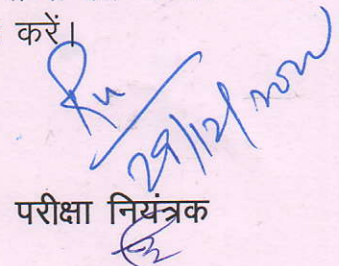 करें।
29/12/2022
परीक्षा नियंत्रक